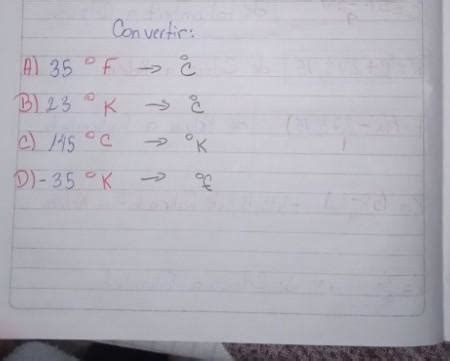 Convertir:
A) 35 ° F → °C
B) 23 ° K → °C
C) 145 °C → °K
D) -35 ° K →